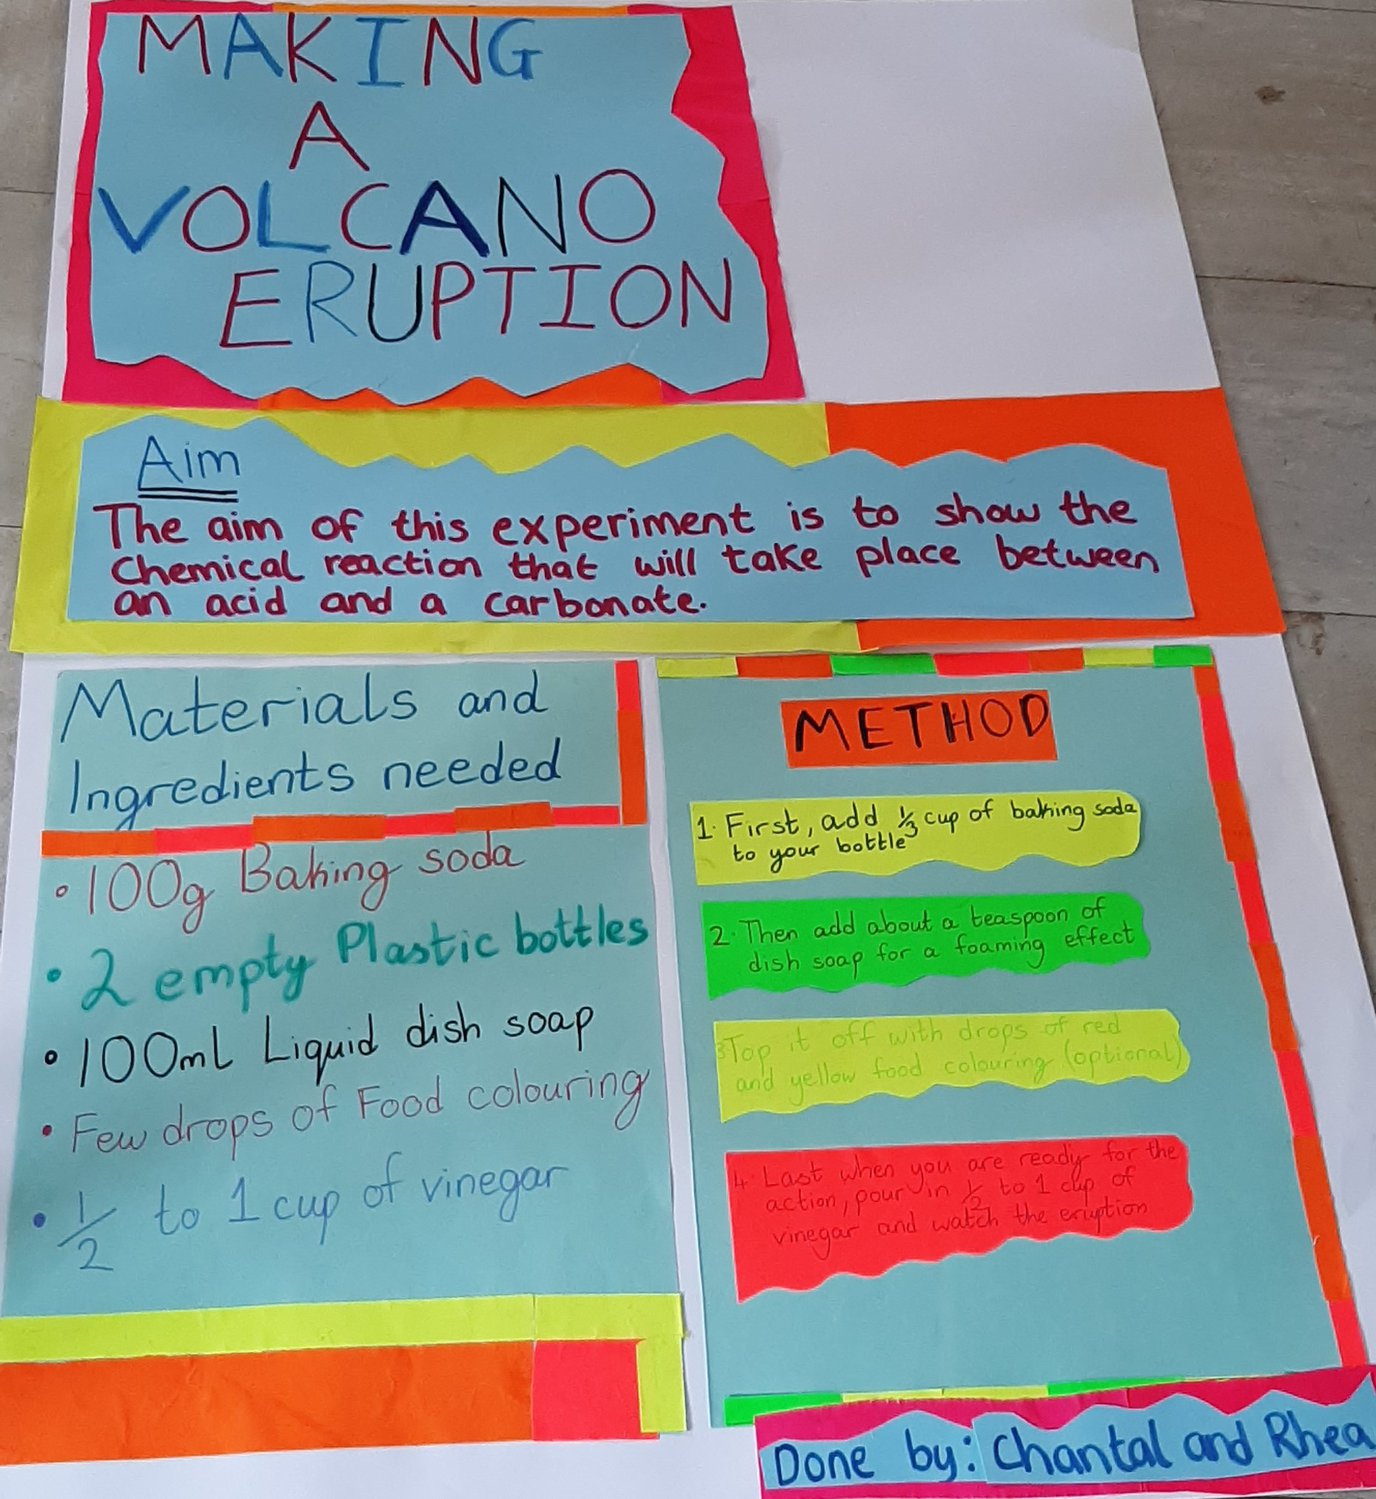 MAKING
A
VOLCANO
ERUPTION
Aim
The aim of this experiment is to show the
Chemical reaction that will take place between
an acid and a carbonate.
Materials and
Ingredients needed
• 100g Baking soda
• 2 empty Plastic bottles
• 100ml Liquid dish soap
• Few drops of Food colouring
• 1/2 to 1 cup of vinegar
METHOD
1. First, add 1/3 cup of baking soda
to your bottle
2. Then add about a teaspoon of
dish soap for a foaming effect
3 Top it off with drops of red
and yellow food colouring (optional)
4. Last when you are ready for the
action, pour in 1/2 to 1 cup of
vinegar and watch the eruption
Done by: Chantal and Rhea